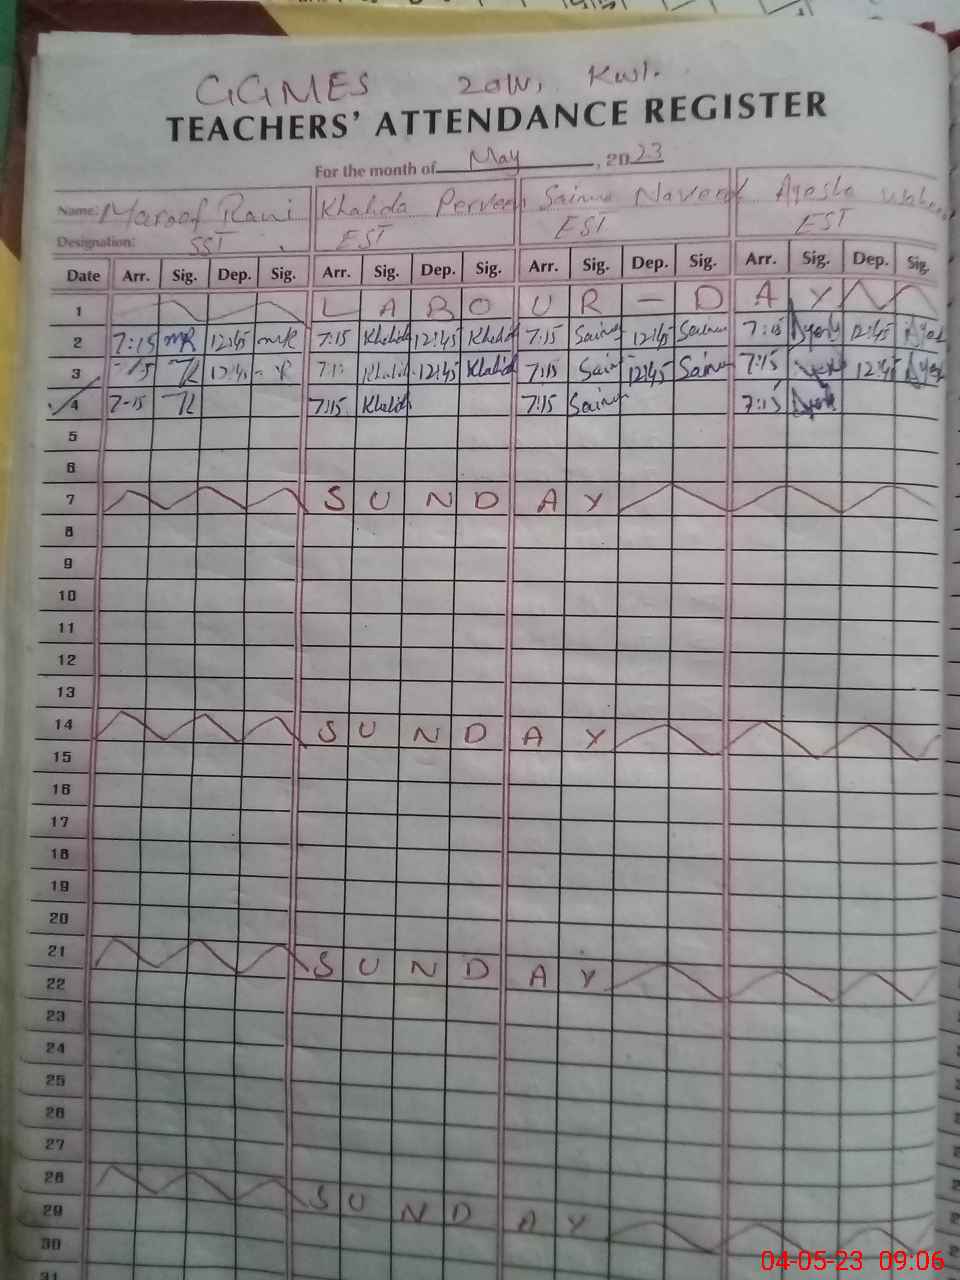 GGMES 20W, Kwl.
TEACHERS' ATTENDANCE REGISTER
For the month of May, 2023
Name: Maroof Rani Khalida Perveen Saima Naveed Ayesha Waheed
Designation: SST EST EST EST
Date Arr. Sig. Dep. Sig. Arr. Sig. Dep. Sig. Arr. Sig. Dep. Sig. Arr. Sig. Dep. Sig.
1 L A B O U R - D A Y
2 7:15 MR 12:45 MR 7:15 Khalid 12:45 Khalid 7:15 Saima 12:45 Saima 7:15 Ayesh 12:45 Ayes
3 7:15 12:45 Khalid 12:45 Khalid 7:15 Saim 12:45 Saima 7:15 12:45 Ayes
4 7-15 7:15 Khalid 7:15 Saima 7:15
5
6
7 S U N D A Y
8
9
10
11
12
13
14 S U N D A Y
15
16
17
18
19
20
21 S U N D A Y
22
23
24
25
26
27
28 S U N D A Y
29
30
31
04-05-23 09:06